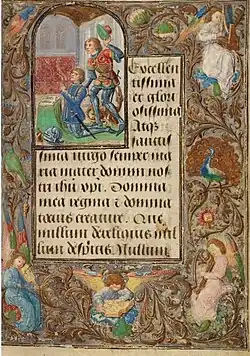 Excellen
tissima
et glori
osissima
Atqȝ
sanctis
sima virgo semper ma
ria mater domini nos
tri ihū xpi. Domina
mea regina et domina
totius creature. Que
nullum derelinquis nul
lum despicis. Nullum